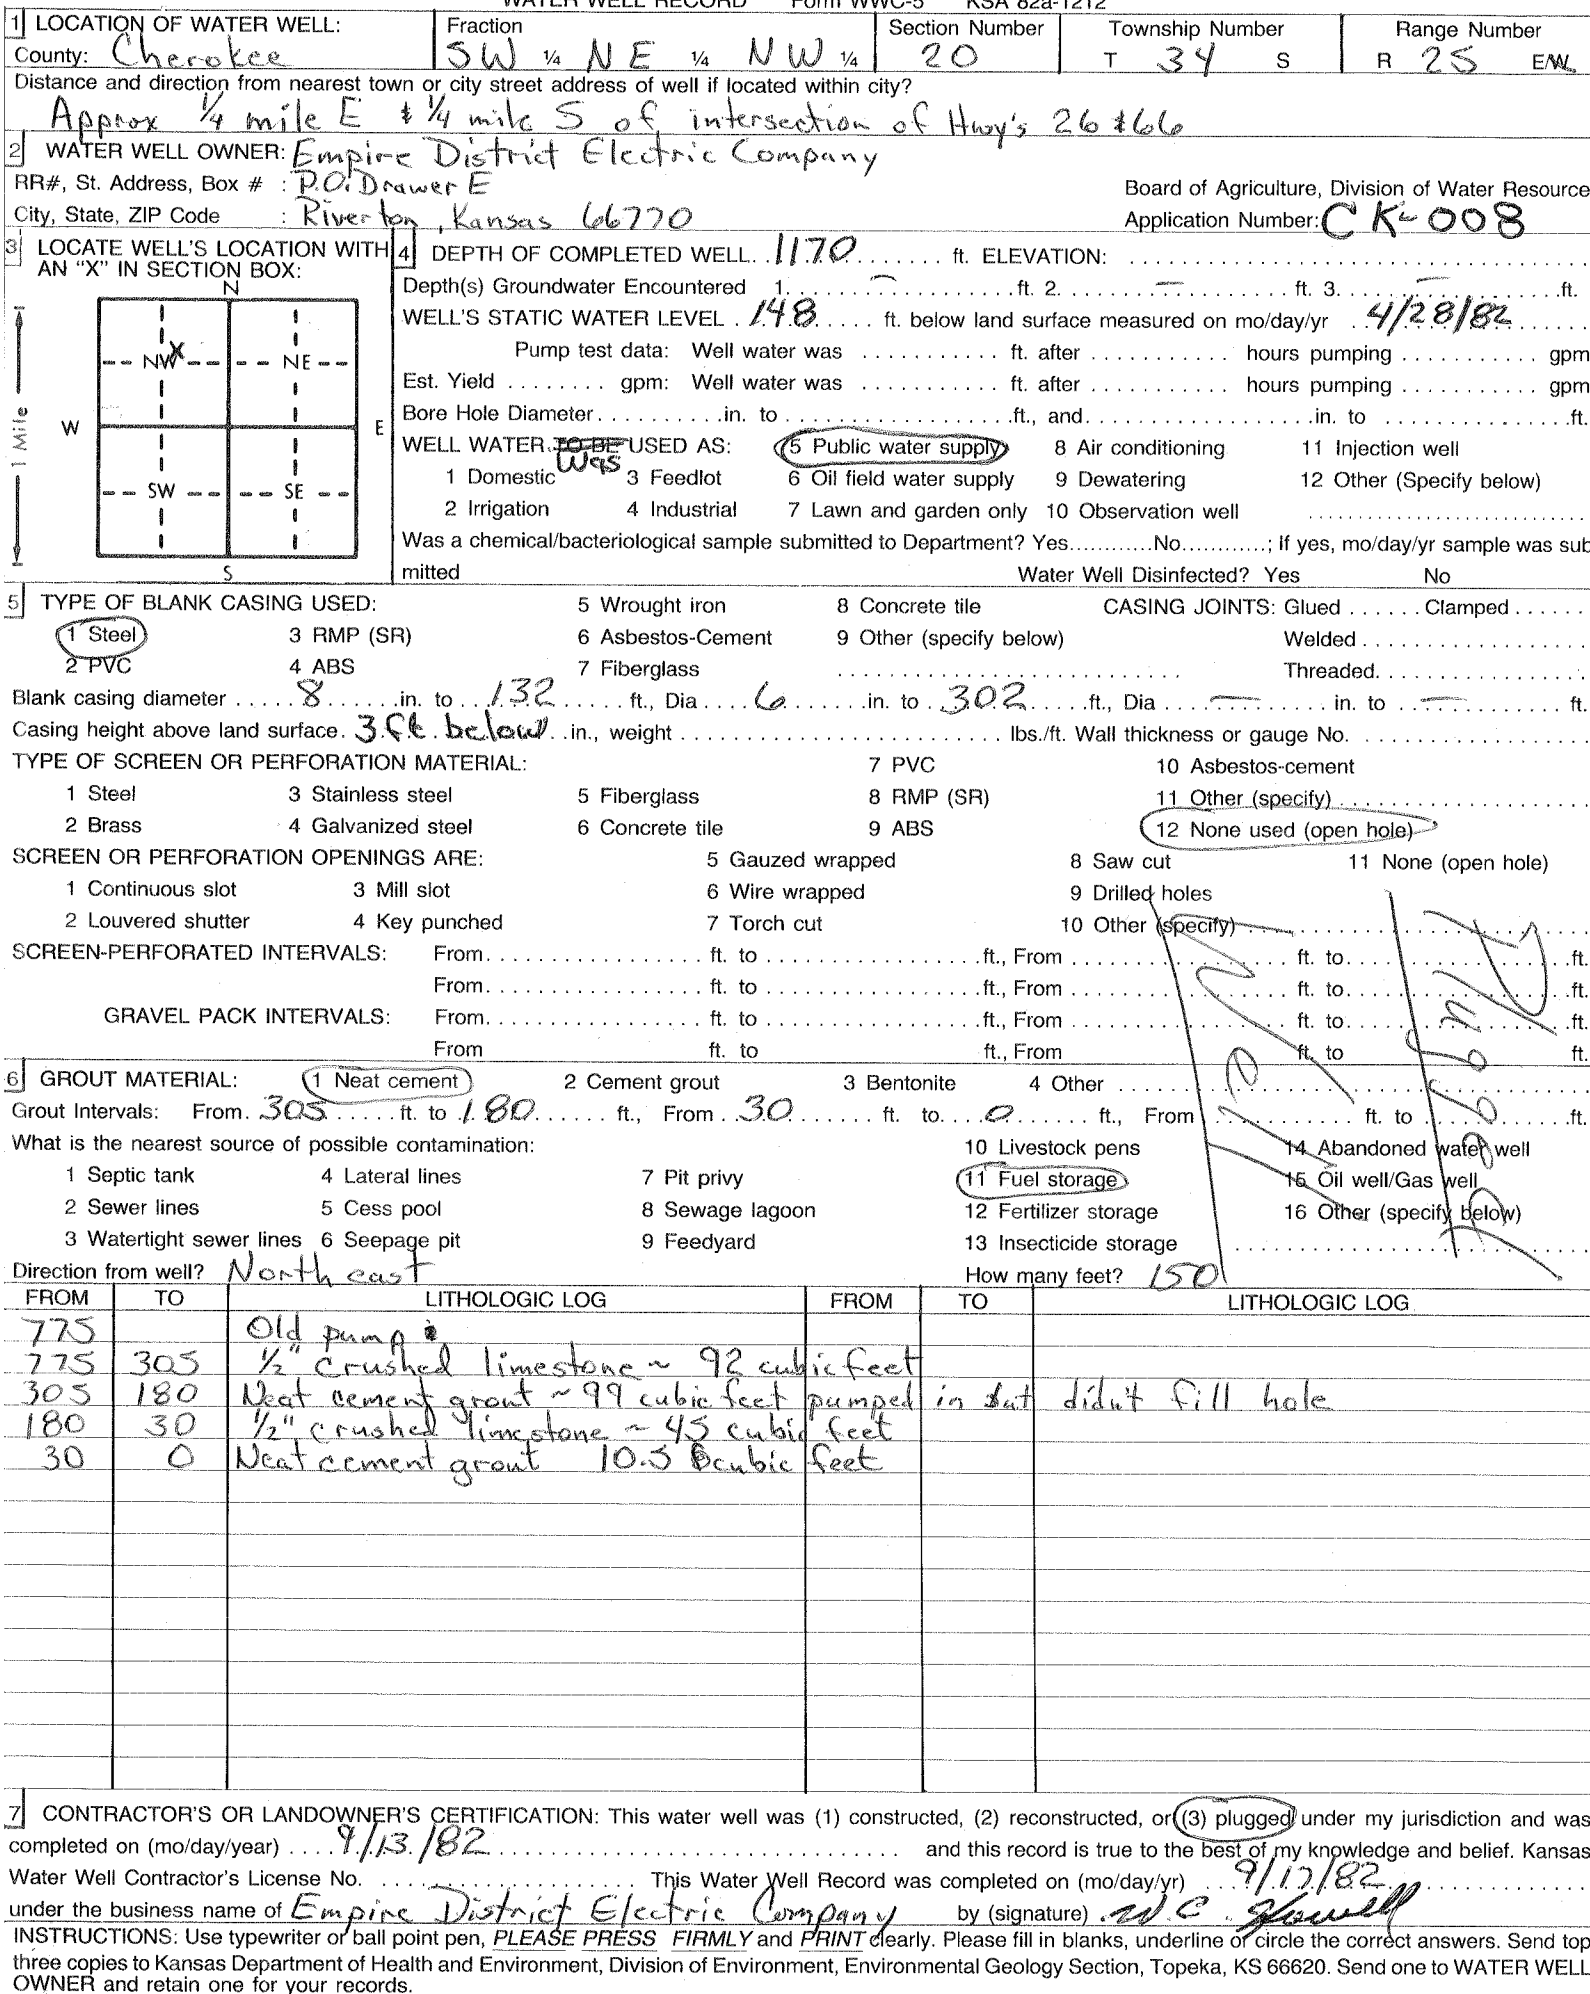 WATER WELL RECORD Form WWC-5 KSA 82a-1212
1 LOCATION OF WATER WELL: Fraction Section Number Township Number Range Number
County: Cherokee SW ¼ NE ¼ NW ¼ 20 T 34 S R 25 E/W
Distance and direction from nearest town or city street address of well if located within city?
Approx ¼ mile E & ¼ mile S of intersection of Hwy's 26 & 66
2 WATER WELL OWNER: Empire District Electric Company
RR#, St. Address, Box # : P.O. Drawer E Board of Agriculture, Division of Water Resource
City, State, ZIP Code : Riverton, Kansas 66770 Application Number: CK-008
3 LOCATE WELL'S LOCATION WITH AN "X" IN SECTION BOX:
N
NW X NE
W E
SW SE
S
1 Mile
4 DEPTH OF COMPLETED WELL. 1170 ft. ELEVATION:
Depth(s) Groundwater Encountered 1. — ft. 2. — ft. 3. — ft.
WELL'S STATIC WATER LEVEL 148 ft. below land surface measured on mo/day/yr 4/28/82
Pump test data: Well water was ft. after hours pumping gpm
Est. Yield gpm: Well water was ft. after hours pumping gpm
Bore Hole Diameter in. to ft., and in. to ft.
WELL WATER TO BE Was USED AS: 5 Public water supply 8 Air conditioning 11 Injection well
1 Domestic 3 Feedlot 6 Oil field water supply 9 Dewatering 12 Other (Specify below)
2 Irrigation 4 Industrial 7 Lawn and garden only 10 Observation well
Was a chemical/bacteriological sample submitted to Department? Yes No ; If yes, mo/day/yr sample was sub
mitted Water Well Disinfected? Yes No
5 TYPE OF BLANK CASING USED: 5 Wrought iron 8 Concrete tile CASING JOINTS: Glued Clamped
1 Steel 3 RMP (SR) 6 Asbestos-Cement 9 Other (specify below) Welded
2 PVC 4 ABS 7 Fiberglass Threaded.
Blank casing diameter 8 in. to 132 ft., Dia 6 in. to 302 ft., Dia — in. to — ft.
Casing height above land surface. 3 ft. below in., weight lbs./ft. Wall thickness or gauge No.
TYPE OF SCREEN OR PERFORATION MATERIAL: 7 PVC 10 Asbestos-cement
1 Steel 3 Stainless steel 5 Fiberglass 8 RMP (SR) 11 Other (specify)
2 Brass 4 Galvanized steel 6 Concrete tile 9 ABS 12 None used (open hole)
SCREEN OR PERFORATION OPENINGS ARE: 5 Gauzed wrapped 8 Saw cut 11 None (open hole)
1 Continuous slot 3 Mill slot 6 Wire wrapped 9 Drilled holes
2 Louvered shutter 4 Key punched 7 Torch cut 10 Other (specify)
SCREEN-PERFORATED INTERVALS: From ft. to ft., From ft. to ft.
From ft. to ft., From ft. to ft.
GRAVEL PACK INTERVALS: From ft. to ft., From ft. to ft.
From ft. to ft., From ft. to ft.
Plugged
Well
6 GROUT MATERIAL: 1 Neat cement 2 Cement grout 3 Bentonite 4 Other
Grout Intervals: From. 305 ft. to 180 ft., From 30 ft. to 0 ft., From ft. to ft.
What is the nearest source of possible contamination: 10 Livestock pens 14 Abandoned water well
1 Septic tank 4 Lateral lines 7 Pit privy 11 Fuel storage 15 Oil well/Gas well
2 Sewer lines 5 Cess pool 8 Sewage lagoon 12 Fertilizer storage 16 Other (specify below)
3 Watertight sewer lines 6 Seepage pit 9 Feedyard 13 Insecticide storage
Direction from well? North east How many feet? 150
FROM TO LITHOLOGIC LOG FROM TO LITHOLOGIC LOG
775 Old pump
775 305 ½" crushed limestone ~ 92 cubic feet
305 180 Neat cement grout ~ 99 cubic feet pumped in but didn't fill hole
180 30 ½" crushed limestone ~ 45 cubic feet
30 0 Neat cement grout 10.5 cubic feet
7 CONTRACTOR'S OR LANDOWNER'S CERTIFICATION: This water well was (1) constructed, (2) reconstructed, or (3) plugged under my jurisdiction and was
completed on (mo/day/year) 9/13/82 and this record is true to the best of my knowledge and belief. Kansas
Water Well Contractor's License No. This Water Well Record was completed on (mo/day/yr) 9/17/82
under the business name of Empire District Electric Company by (signature) W.C. Howell
INSTRUCTIONS: Use typewriter or ball point pen, PLEASE PRESS FIRMLY and PRINT clearly. Please fill in blanks, underline or circle the correct answers. Send top
three copies to Kansas Department of Health and Environment, Division of Environment, Environmental Geology Section, Topeka, KS 66620. Send one to WATER WELL
OWNER and retain one for your records.